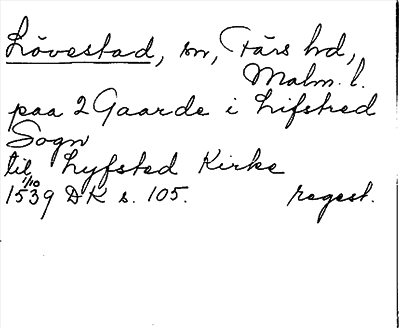 Lövestad, sn, Färs hd,
Malm. l.
paa 2 Gaarde i Lifsted
Sogn
til Lyfsted Kirke
1/10
1539 DK s. 105. regest.